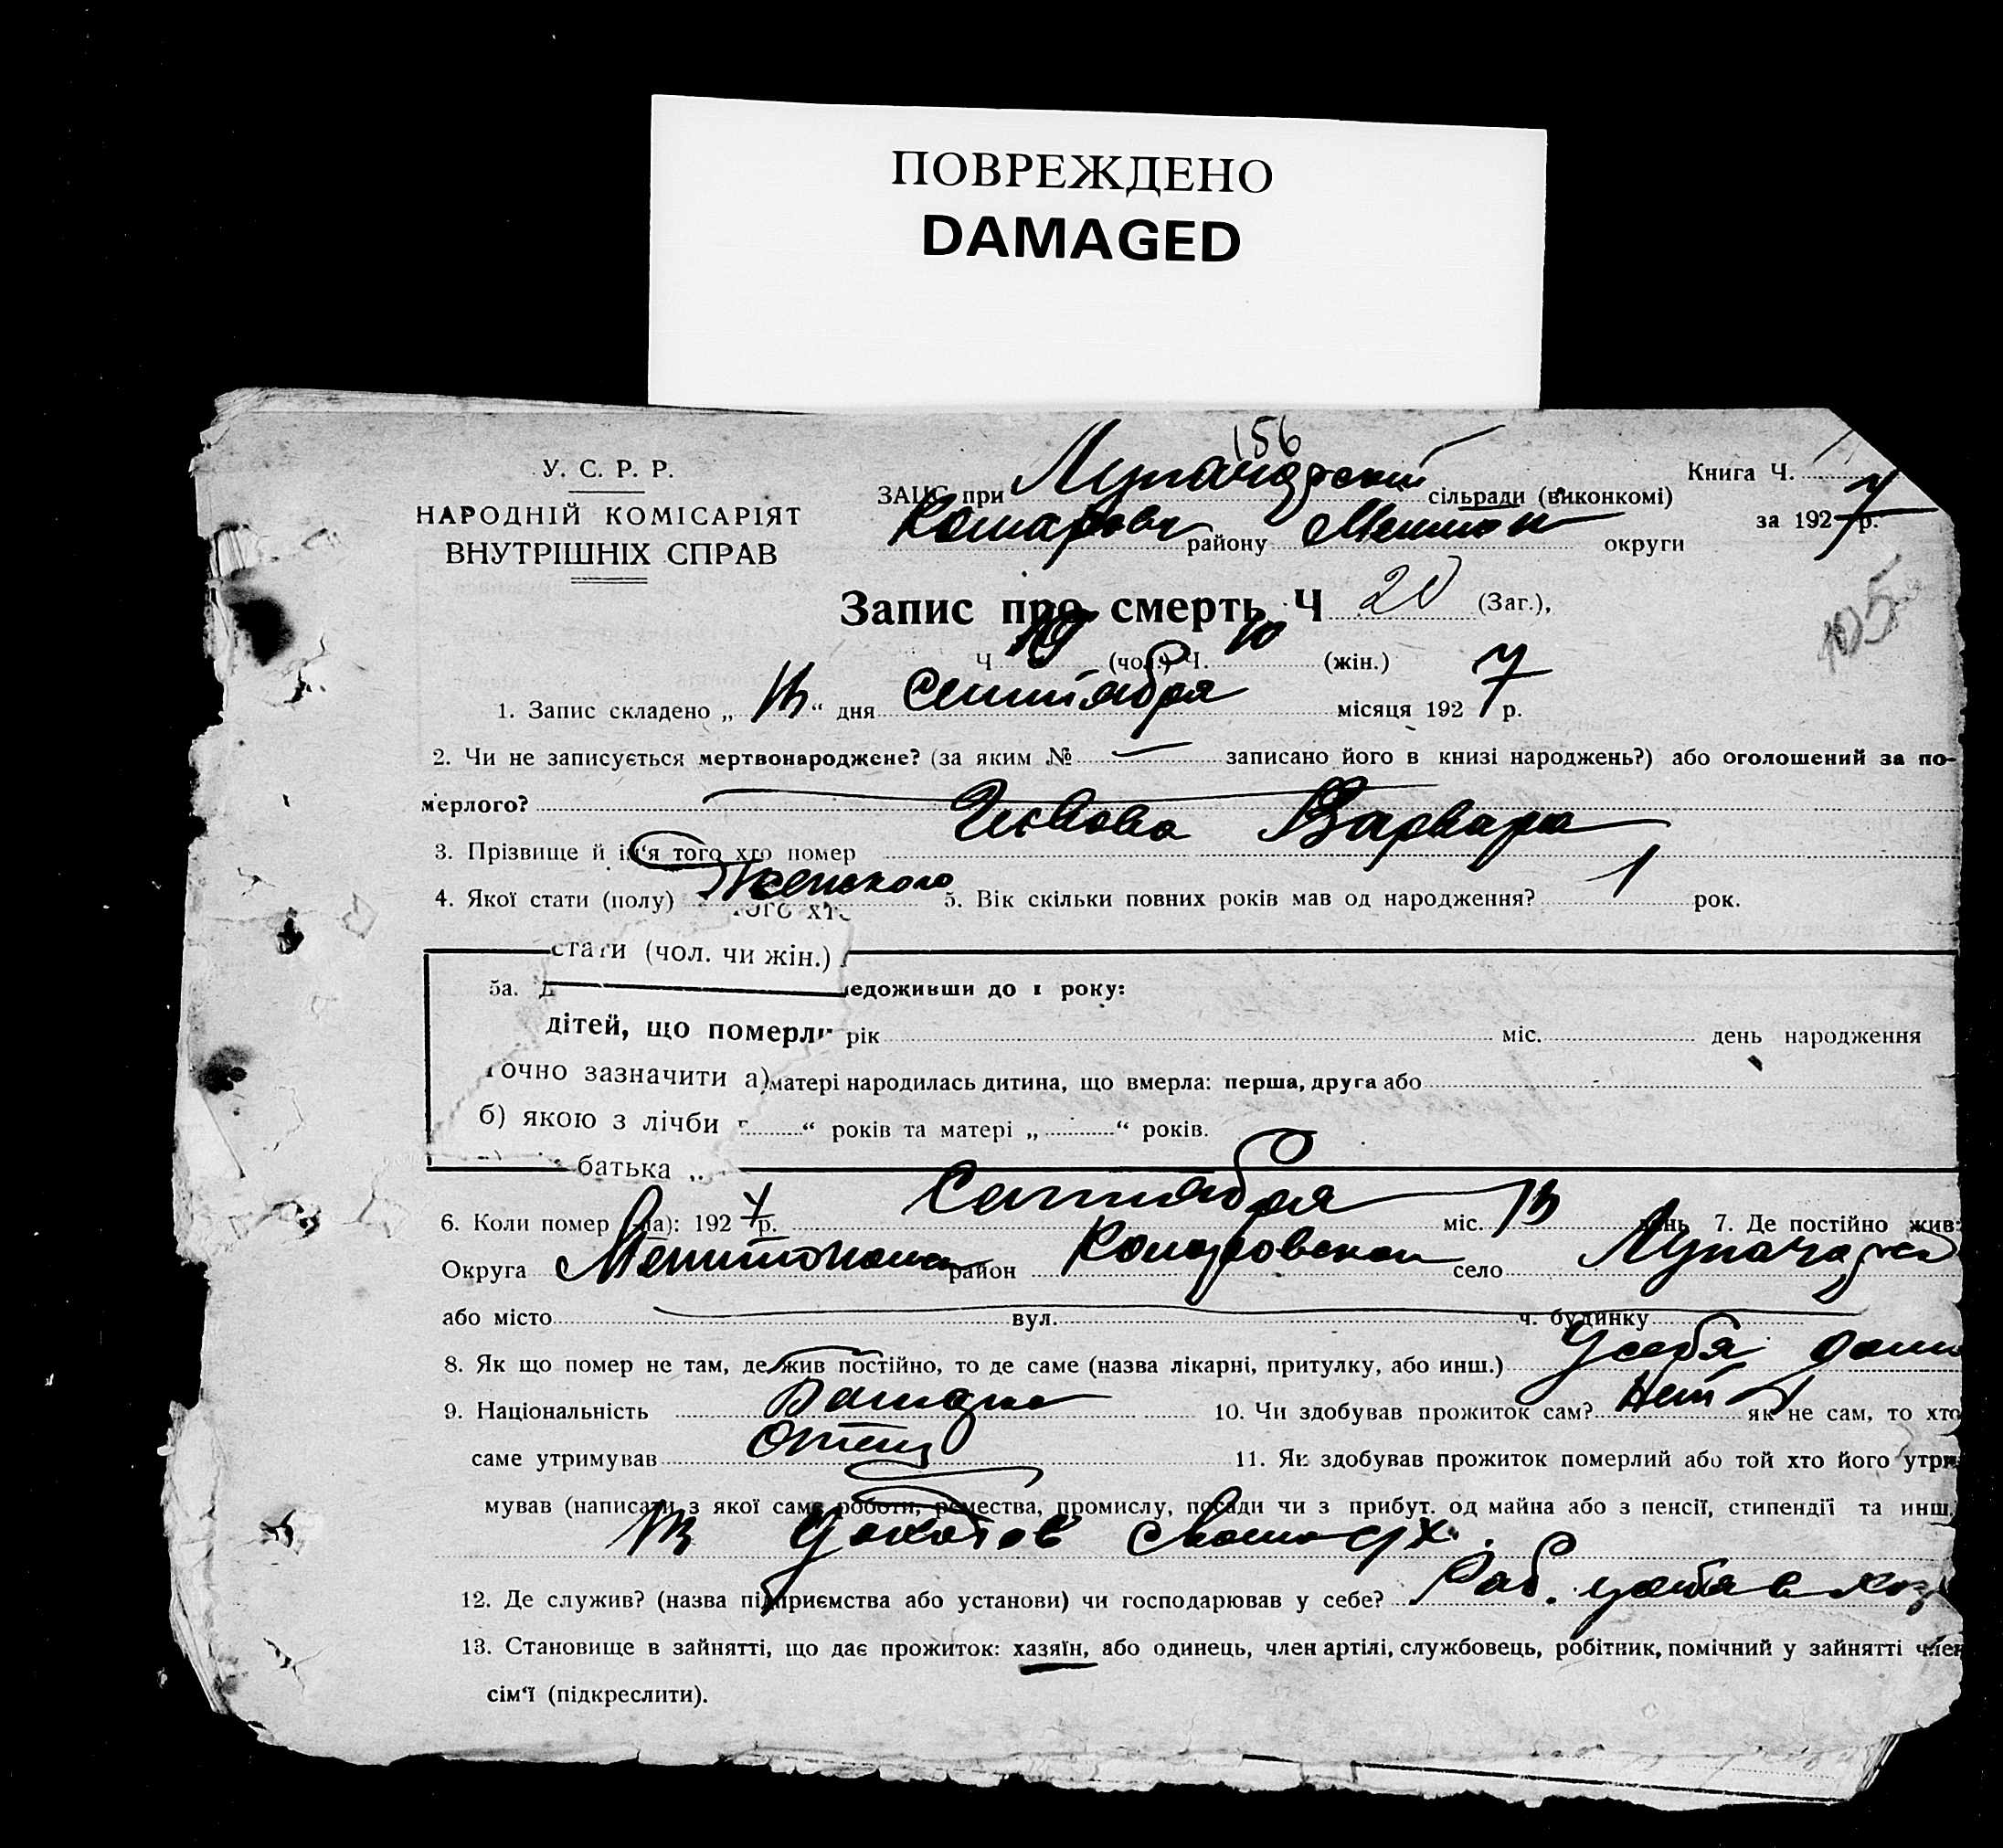 ПОВРЕЖДЕНО
DAMAGED
156
У. С. Р. Р.
НАРОДНІЙ КОМІСАРІЯТ
ВНУТРІШНІХ СПРАВ
ЗАГС при сільради (виконкомі)
району округи
Книга Ч.
за 1927 р.
105
Запис про смерть Ч 20 (Заг.),
Ч (чол.) Ч. 10 (жін.)
1. Запис складено „ “ дня Сентября місяця 1927 р.
2. Чи не записується мертвонароджене? (за яким № — записано його в книзі народжень?) або оголошений за по-
мерлого?
3. Прізвище й ім‘я того хто помер Варвара
4. Якої стати (полу) Женского 5. Вік скільки повних років мав од народження? 1 рок.
того хто
стати (чол. чи жін.)
5а. Д недоживши до 1 року:
дітей, що померли рік міс. день народження
точно зазначити а) матері народилась дитина, що вмерла: перша, друга або
б) якою з лічби “ років та матері „ “ років.
батька „
6. Коли помер (ла): 1927 р. Сентября міс. день 7. Де постійно жив:
Округа район село
або місто вул. ч. будинку
8. Як що помер не там, де жив постійно, то де саме (назва лікарні, притулку, або инш.) У себя дома
9. Національність 10. Чи здобував прожиток сам? Нет як не сам, то хто
саме утримував Отец 11. Як здобував прожиток померлий або той хто його утри-
мував (написати з якої саме роботи, ремества, промислу, посади чи з прибут. од майна або з пенсії, стипендії та инш.)
Из доходов своего с/х.
12. Де служив? (назва підприємства або установи) чи господарював у себе? Раб. у себя в хоз
13. Становище в зайнятті, що дає прожиток: хазяїн, або одинець, член артілі, службовець, робітник, помічний у зайнятті член
сім‘ї (підкреслити).